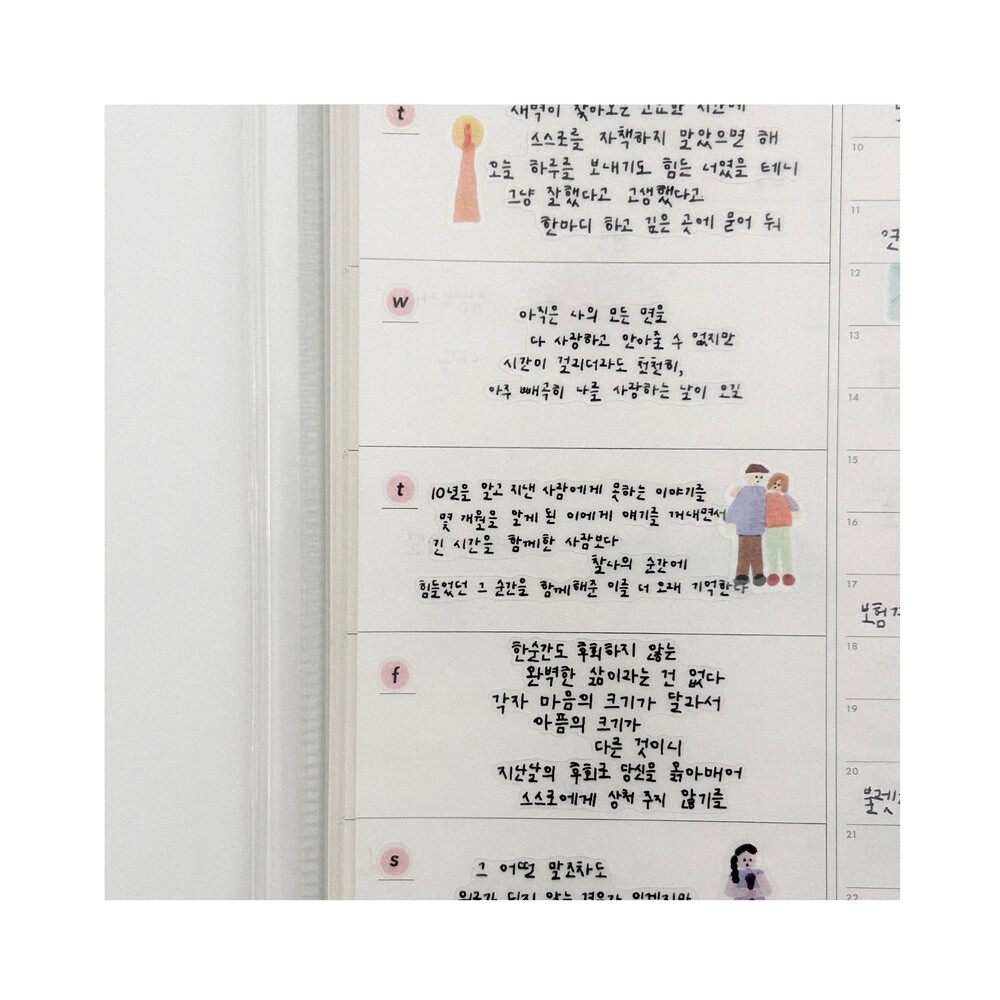 t
새벽이 찾아오는 고요한 시간에
스스로를 자책하지 말았으면 해
오늘 하루를 보내기도 힘든 너였을 테니
그냥 잘했다고 고생했다고
한마디 하고 깊은 곳에 묻어 둬
w
아직은 나의 모든 면을
다 사랑하고 안아줄 수 없지만
시간이 걸리더라도 천천히,
아주 빼곡히 나를 사랑하는 날이 오길
t
10년을 알고 지낸 사람에게 못하는 이야기를
몇 개월을 알게 된 이에게 얘기를 꺼내면서
긴 시간을 함께한 사람보다
찰나의 순간에
힘들었던 그 순간을 함께해준 이를 더 오래 기억한다
f
한순간도 후회하지 않는
완벽한 삶이라는 건 없다
각자 마음의 크기가 달라서
아픔의 크기가
다른 것이니
지난날의 후회로 당신을 옭아매어
스스로에게 상처 주지 않기를
s
그 어떤 말조차도
위로가 되지 않는 경우가 있겠지만
10
11
12
13
14
15
16
17
보험
18
19
20
불렛
21
22